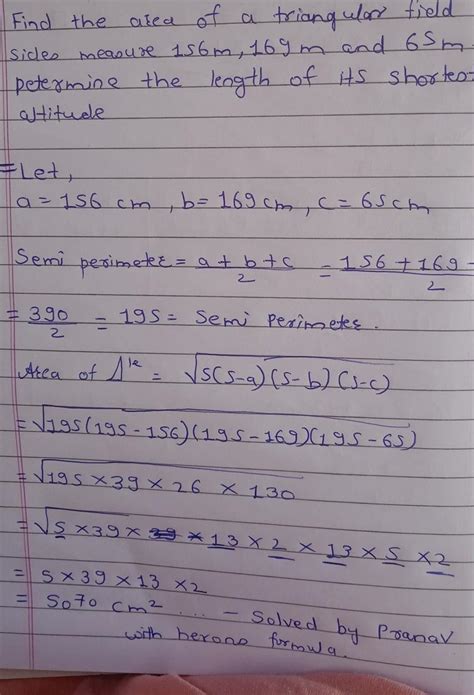 Find the area of a triangular field
sides measure 156m, 169m and 65m
Determine the length of its shortes
altitude
=Let,
a = 156 cm , b= 169 cm , c = 65 cm
Semi perimeter = a + b + c / 2 = 156 + 169 / 2
= 390 / 2 = 195 = Semi Perimeter.
Area of Δle = √S(S-a) (S-b) (S-c)
=√195(195-156)(195-169)(195-65)
=√195 × 39 × 26 × 130
=√5 × 39 × 39 × 13 × 2 × 13 × 5 × 2
= 5 × 39 × 13 × 2
= 5070 cm² ... - Solved by Pranav
with herons formula.